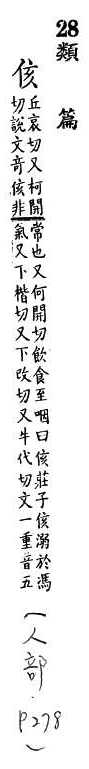 28類
篇
侅
丘哀切又柯開常也又何開切飲食至咽曰侅莊子侅溺於馮
切說文奇侅非氣又下楷切又下改切又牛代切文一重音五
(人部.P278)